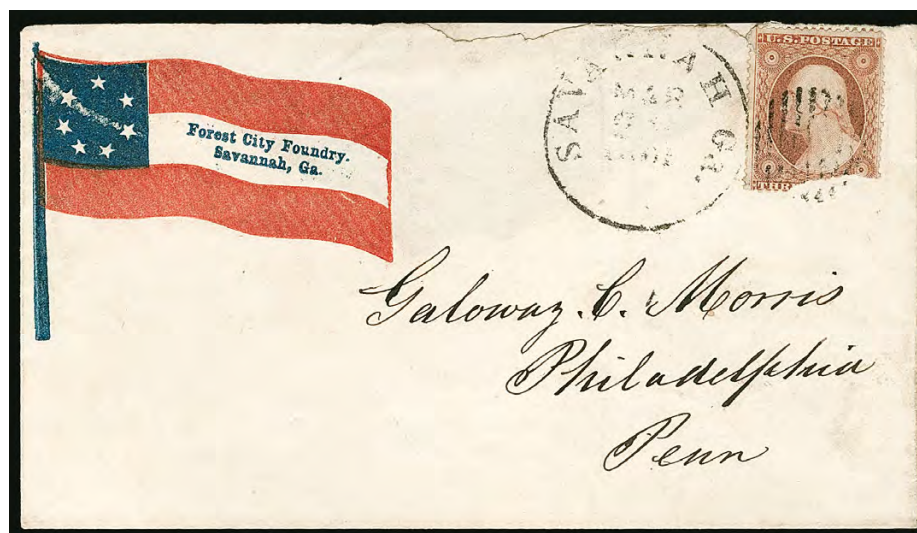 Forest City Foundry.
Savannah, Ga.
SAVANNAH Ga.
MAR
1861
U.S. POSTAGE
THR
Galoway. C. Morris
Philadelphia
Penn